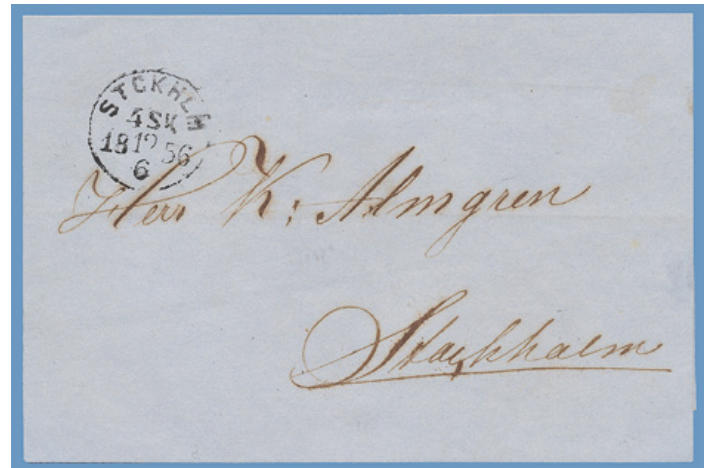 STCKHLM
4 SK
18 56
6
Herr K: Almgren
Stockholm